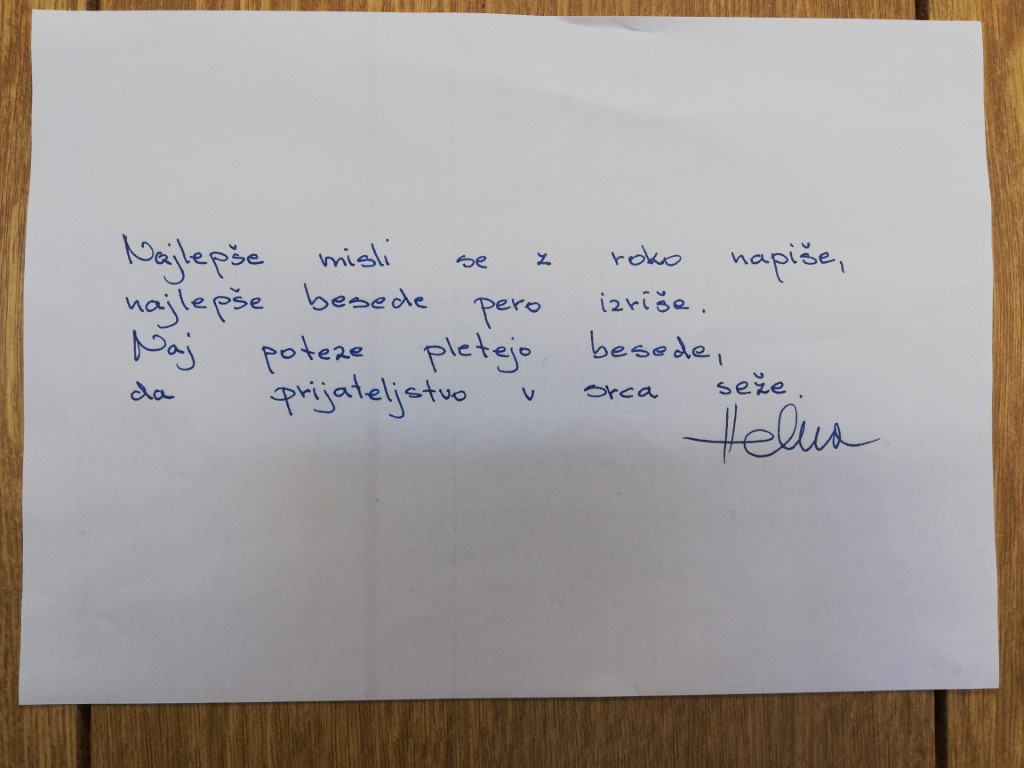 Najlepše misli se z roko napiše,
najlepše besede pero izriše.
Naj poteze pletejo besede,
da prijateljstvo v srca seže.